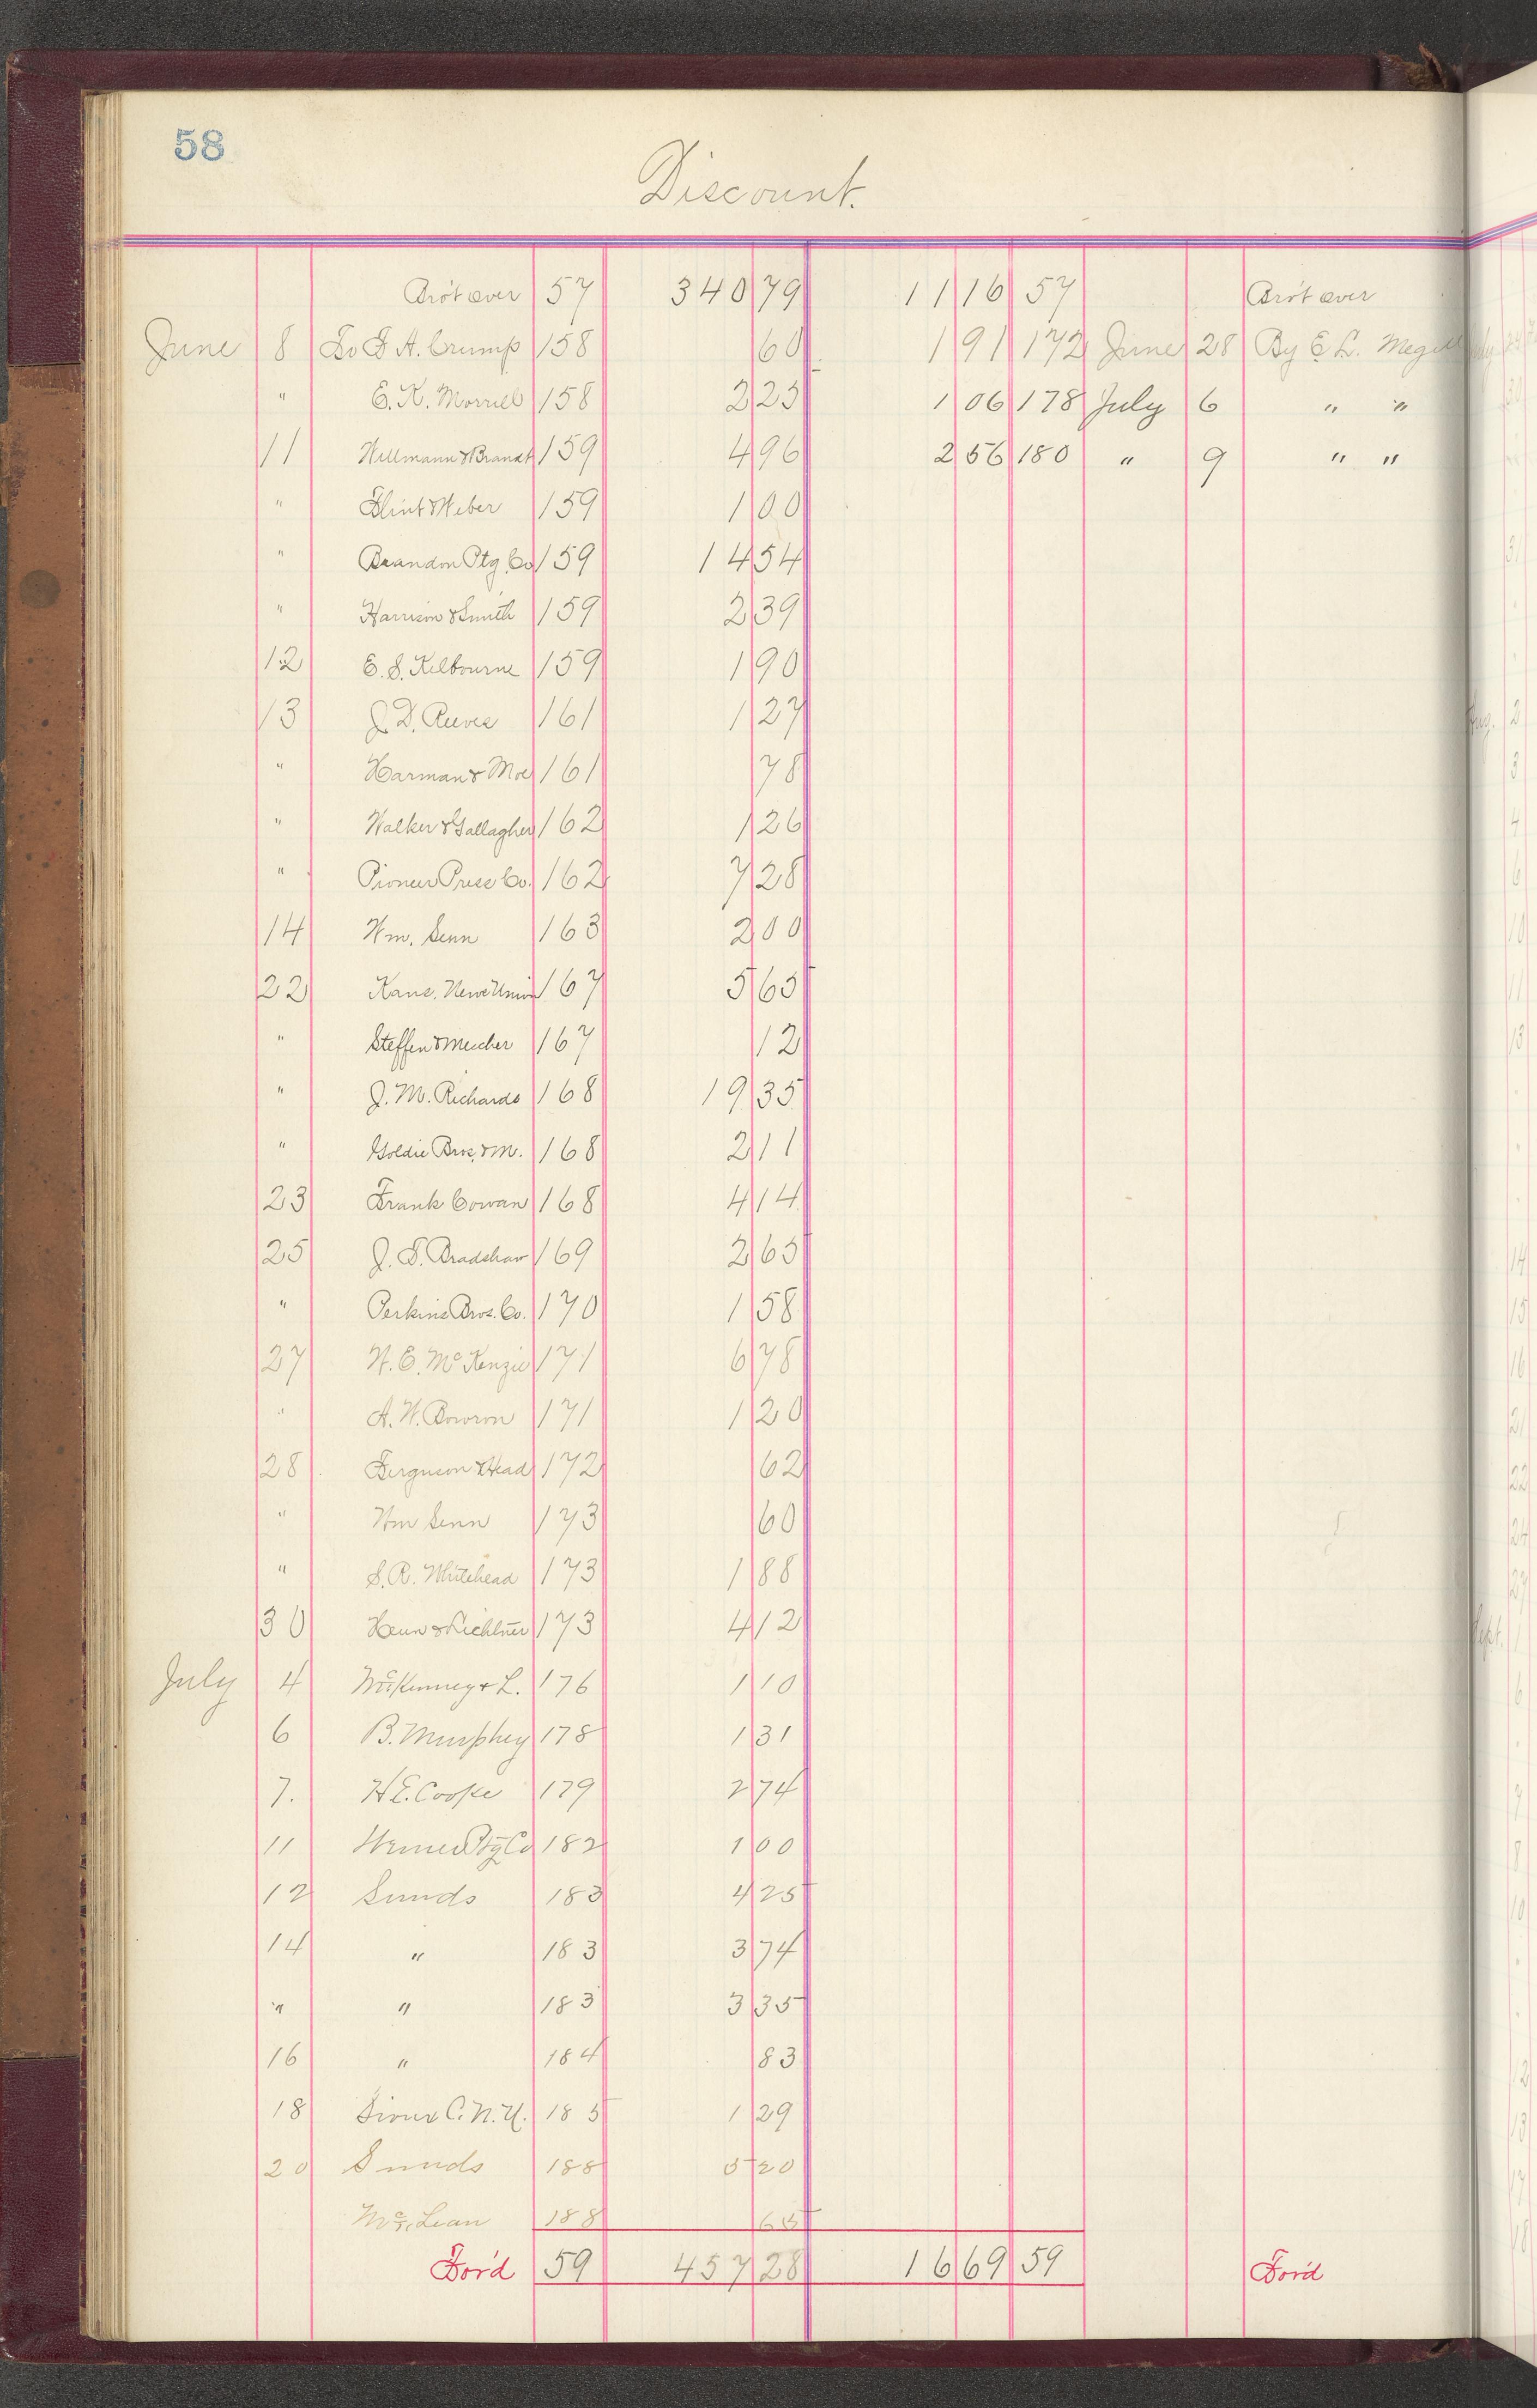 58
Discount.
Bro't over 57 340 79 11 16 57 Bro't over
June 8 To F. A. Crump 158 60 1 91 172 June 28 By E. L. Megill
" E. K. Morrill 158 2 25 1 06 178 July 6 " "
11 Willmann & Brandt 159 4 96 2 56 180 " 9 " "
" Flint & Weber 159 1 00
" Brandon Ptg. Co 159 14 54
" Harrison & Smith 159 2 39
12 E. S. Kilbourne 159 1 90
13 J. D. Reeves 161 1 27
" Harman & Moe 161 78
" Walker & Gallagher 162 1 26
" Pioneer Press Co. 162 7 28
14 Wm. Senn 163 2 00
22 Kans. News Union 167 5 65
" Steffen & Mescher 167 12
" J. M. Richards 168 19 35
" Goldie Bros. & M. 168 2 11
23 Frank Cowan 168 4 14
25 J. S. Bradshaw 169 2 65
" Perkins Bros. Co. 170 1 58
27 W. E. McKenzie 171 6 78
" A. W. Bowron 171 1 20
28 Ferguson & Head 172 62
" Wm Senn 173 60
" S. R. Whitehead 173 1 88
30 Henn & 173 4 12
July 4 McKinney & L. 176 1 10
6 B. Murphey 178 1 31
7. H E. Cooke 179 2 74
11 Ptg Co 182 1 00
12 Sunds 183 4 25
14 " 183 3 74
" " 183 3 35
16 " 184 83
18 Sioux C. N. U. 185 1 29
20 Sunds 188 5 20
McLean 188 65
For'd 59 457 28 16 69 59 For'd